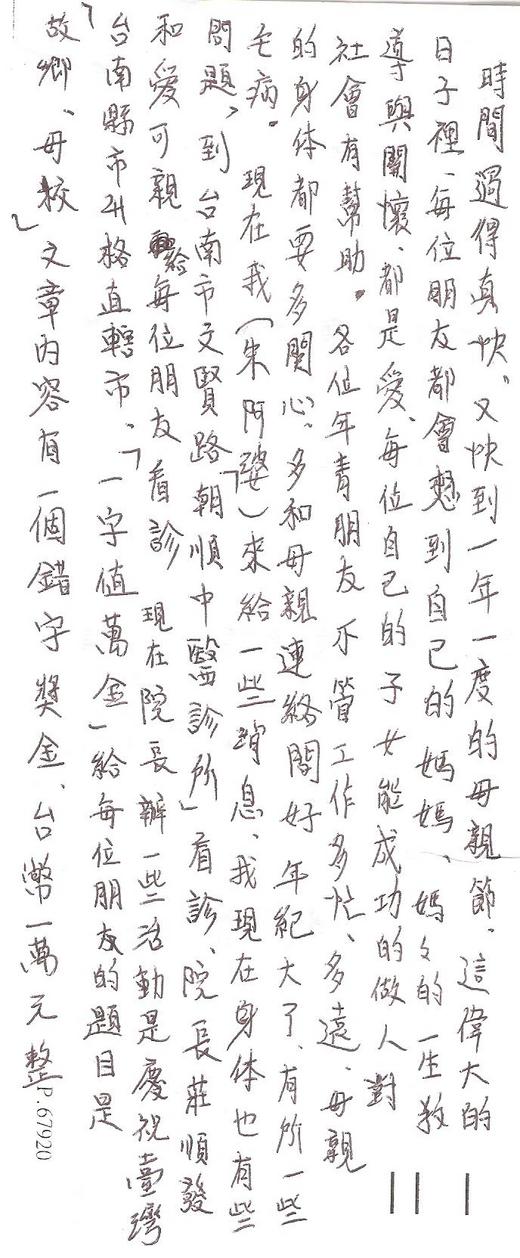 時間過得真快、又快到一年一度的母親節、這偉大的
日子裡、每位朋友都會想到自己的媽媽、媽々的一生教
導與關懷、都是愛、每位自己的子女能成功的做人對
社會有幫助。各位年青朋友不管工作多忙、多遠、母親
的身体都要多関心。多和母親連絡問好年紀大了、有所一些
毛病。現在我(朱阿婆)來給一些消息、我現在身体也有些
問題、到台南市文賢路「朝順中醫診所」看診、院長莊順發
和愛可親給每位朋友看診 現在院長辦一些活動是慶祝臺灣
台南縣市升格直轄市、「一字值萬金」給每位朋友的題目是
「故鄉、母校」文章內容有一個錯字獎金、台幣一萬元整
P.67920